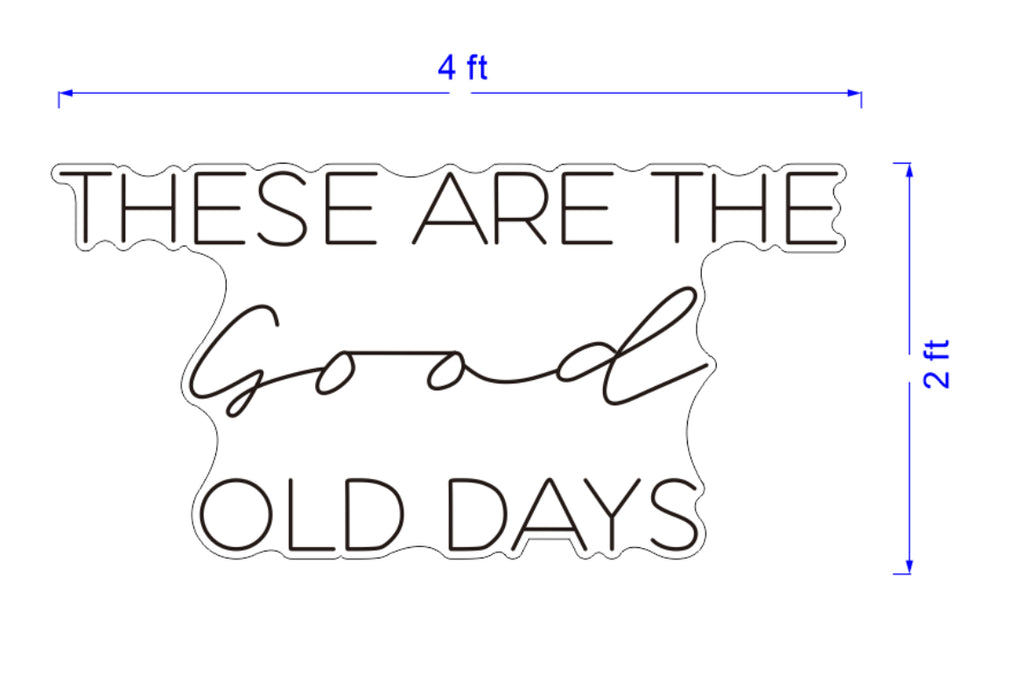 4 ft
THESE ARE THE
Good
OLD DAYS
2 ft